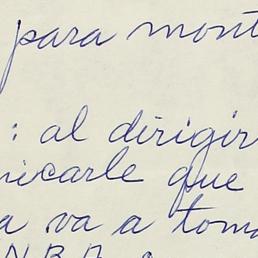 para mont
: al dirigir
nicarle que
a va a toma
N.B.B. a